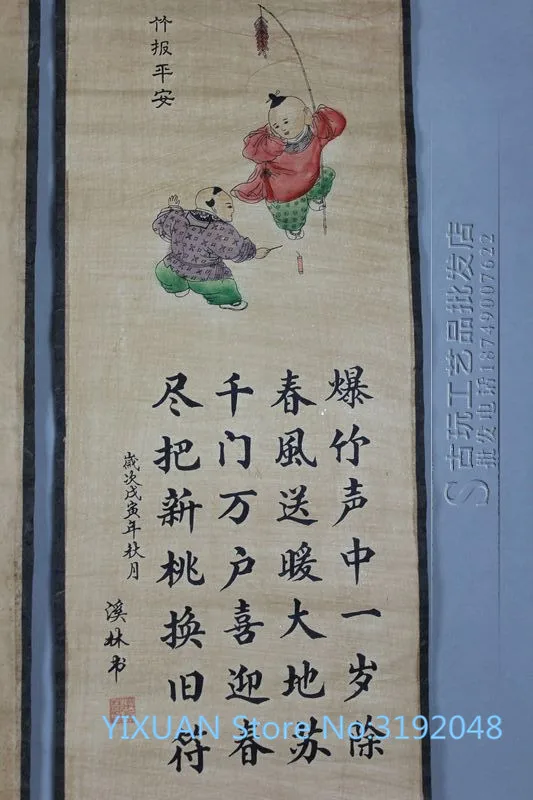 竹报平安
爆竹声中一岁除
春風送暖大地苏
千门万户喜迎春
尽把新桃换旧符
歲次戊寅年秋月
溪林书
S古玩工艺品批发店
批发电话18749007622
YIXUAN Store No:3192048